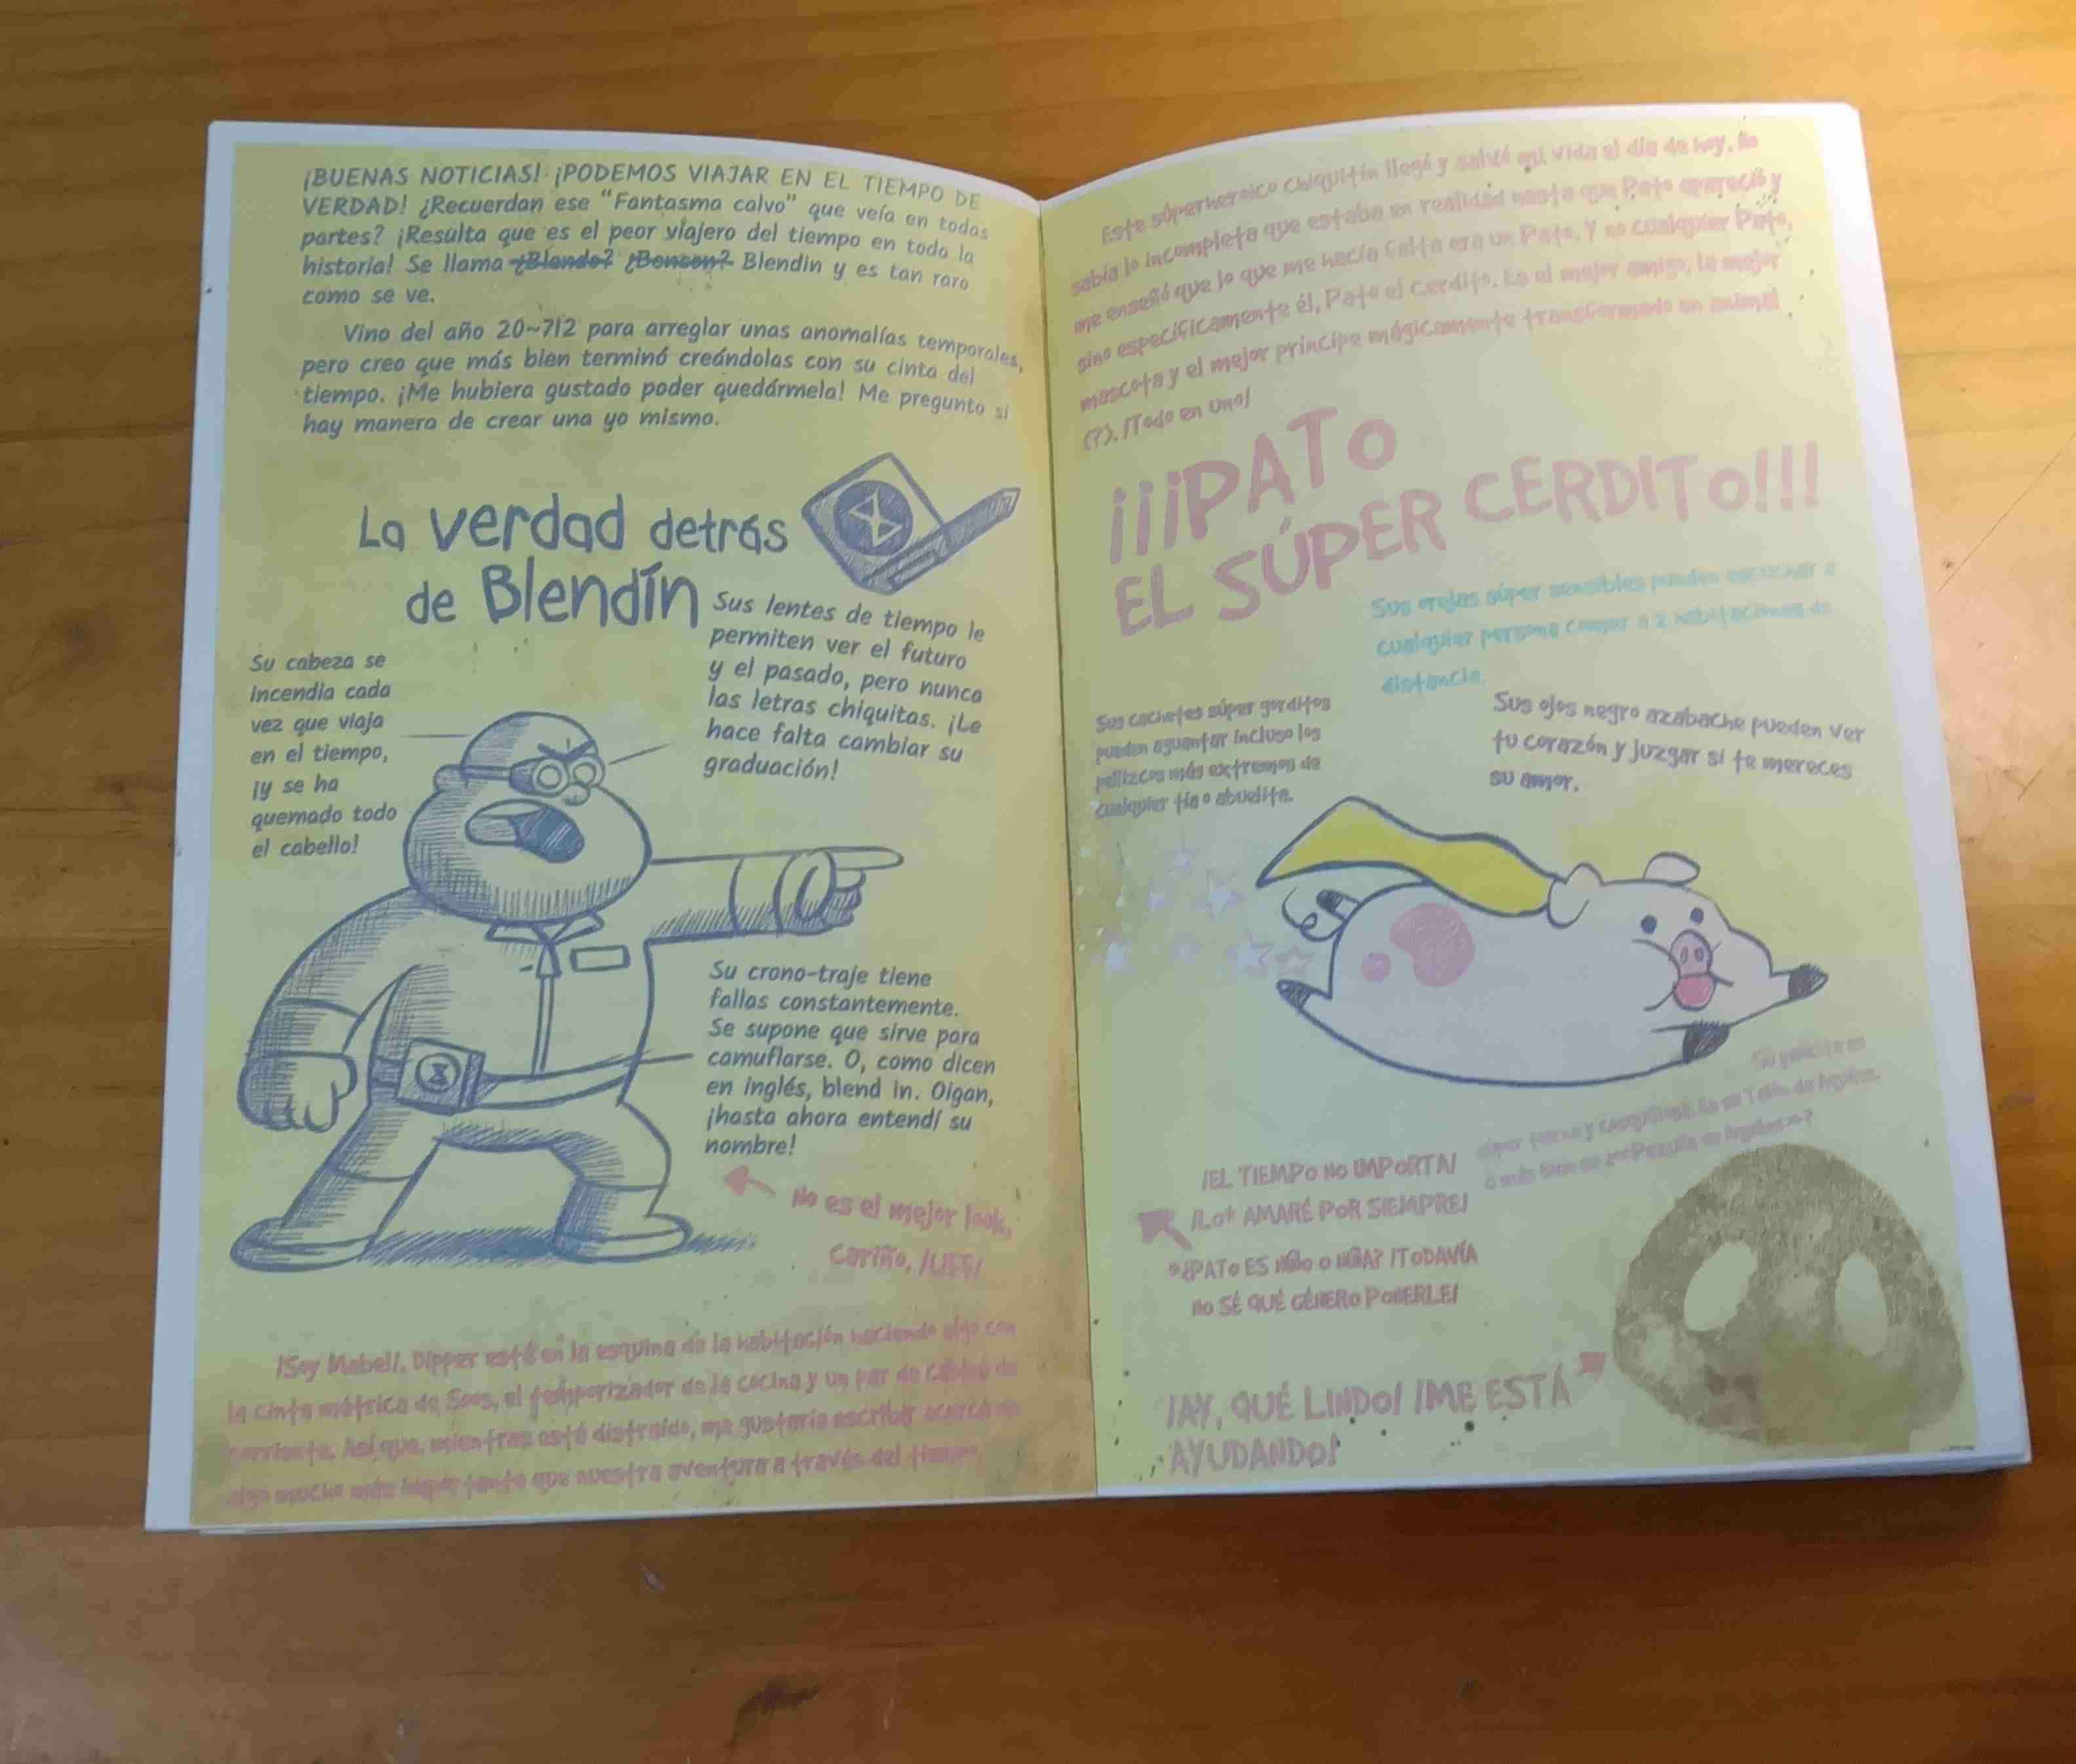 ¡BUENAS NOTICIAS! ¡PODEMOS VIAJAR EN EL TIEMPO DE
VERDAD! ¿Recuerdan ese “Fantasma calvo” que veía en todas
partes? ¡Resulta que es el peor viajero del tiempo en toda la
historia! Se llama ¿Blando? ¿Bonson? Blendin y es tan raro
como se ve.
Vino del año 20~712 para arreglar unas anomalías temporales,
pero creo que más bien terminó creándolas con su cinta del
tiempo. ¡Me hubiera gustado poder quedármela! Me pregunto si
hay manera de crear una yo mismo.
La verdad detrás
de Blendín
Su cabeza se
incendia cada
vez que viaja
en el tiempo,
¡y se ha
quemado todo
el cabello!
Sus lentes de tiempo le
permiten ver el futuro
y el pasado, pero nunca
las letras chiquitas. ¡Le
hace falta cambiar su
graduación!
Su crono-traje tiene
fallas constantemente.
Se supone que sirve para
camuflarse. O, como dicen
en inglés, blend in. Oigan,
¡hasta ahora entendí su
nombre!
No es el mejor look,
cariño. ¡UFF!
¡Soy Mabel!, Dipper está en la esquina de la habitación haciendo algo con
la cinta métrica de Soos, el temporizador de la cocina y un par de cables de
corriente. Así que, mientras está distraído, me gustaría escribir acerca de
algo mucho más importante que nuestra aventura a través del tiempo.
Este súperheroico chiquitín llegó y salvó mi vida el día de hoy. No
sabía lo incompleta que estaba en realidad hasta que Pato apareció y
me enseñó que lo que me hacía falta era un Pato. Y no cualquier Pato,
sino específicamente él, Pato el Cerdito. Es el mejor amigo, la mejor
mascota y el mejor príncipe mágicamente transformado en animal
(?). ¡Todo en uno!
¡¡¡PATO
EL SÚPER CERDITO!!!
Sus orejas súper sensibles pueden escuchar a
cualquier persona comer a 2 habitaciones de
distancia.
Sus cachetes súper gorditos
pueden aguantar incluso los
pellizcos más extremos de
cualquier tía o abuelita.
Sus ojos negro azabache pueden ver
tu corazón y juzgar si te mereces
su amor.
Su pancita es
súper tierna y cosquillosa. Es su Talón de Aquiles.
o más bien su "Pezuña de Aquiles"?
¡EL TIEMPO NO IMPORTA!
¡LO* AMARÉ POR SIEMPRE!
*¿PATO ES NIÑO O NIÑA? ¡TODAVÍA
NO SÉ QUÉ GÉNERO PONERLE!
¡AY, QUÉ LINDO! ¡ME ESTÁ
AYUDANDO!